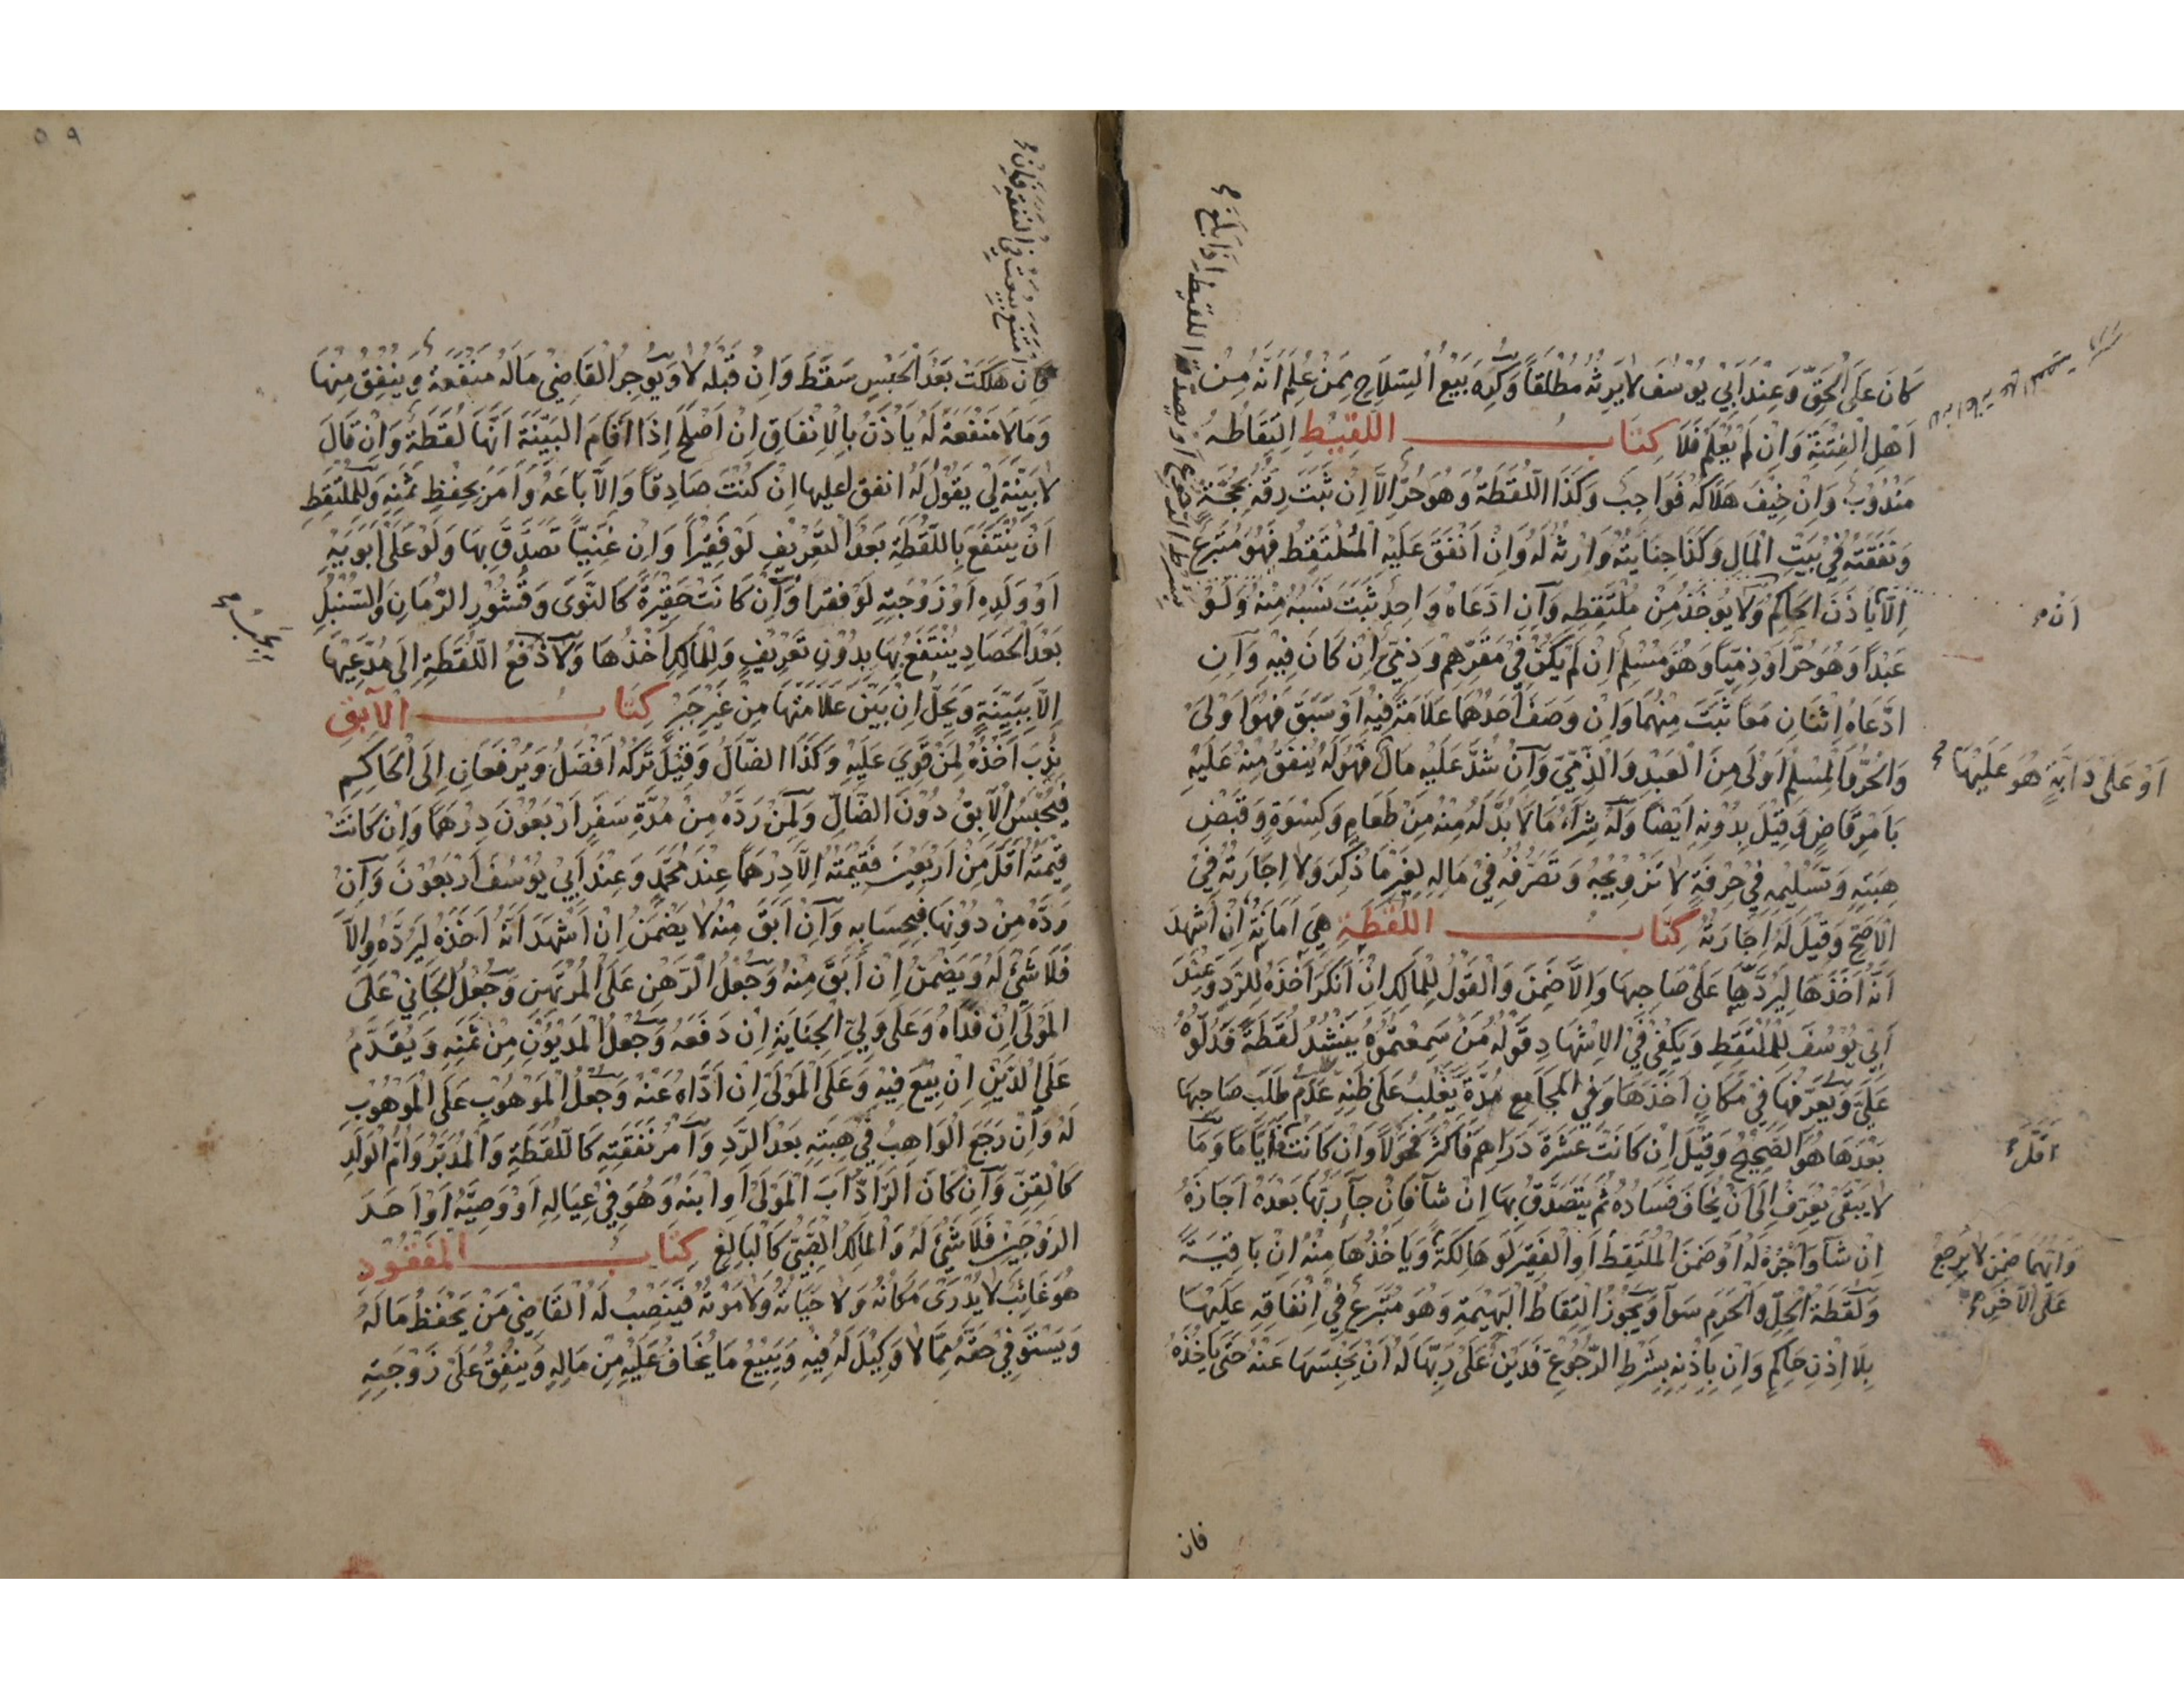 كَانَ عَلَى الْحَقِّ وَعِنْدَ اَبِيْ يُوْسُفَ لَا يَرِثُهُ مُطْلَقًا وَكُرِهَ بَيْعُ السِّلَاحِ مِمَّنْ عُلِمَ اَنَّهُ مِنْ
اَهْلِ الْفِتْنَةِ وَاِنْ لَمْ يُعْلَمْ فَلَا كِتَابُ اللَّقِيْطِ اِلْتِقَاطُهُ
مَنْدُوْبٌ وَاِنْ خِيْفَ هَلَاكُهُ فَوَاجِبٌ وَكَذَا اللُّقَطَةُ وَهُوَ حُرٌّ اِلَّا اِنْ ثَبَتَ رِقُّهُ بِحُجَّةٍ
وَنَفَقَتُهُ فِيْ بَيْتِ الْمَالِ وَكَذَا جِنَايَتُهُ وَارْثُهُ لَهُ وَاِنْ اَنْفَقَ عَلَيْهِ الْمُلْتَقِطُ فَهُوَ مُتَبَرِّعٌ
اِلَّا بِاِذْنِ الْحَاكِمِ وَلَا يُؤْخَذُ مِنْ مُلْتَقِطِهِ وَاِنِ ادَّعَاهُ وَاحِدٌ ثَبَتَ نَسَبُهُ مِنْهُ وَلَوْ
عَبْدًا وَهُوَ حُرٌّ اَوْ ذِمِّيًا وَهُوَ مُسْلِمٌ اِنْ لَمْ يَكُنْ فِيْ مَقَرِّهِمْ وَذِمِّيٌّ اِنْ كَانَ فِيْهِ وَاِنِ
ادَّعَاهُ اثْنَانِ مَعًا ثَبَتَ مِنْهُمَا وَاِنْ وَصَفَ اَحَدُهُمَا عَلَامَةً فِيْهِ اَوْ سَبَقَ فَهُوَ اَوْلَى
وَالْحُرُّ وَالْمُسْلِمُ اَوْلَى مِنَ الْعَبْدِ وَالذِّمِّيِّ وَاِنْ شُدَّ عَلَيْهِ مَالٌ فَهُوَ لَهُ يُنْفَقُ مِنْهُ عَلَيْهِ
بِاَمْرِ قَاضٍ وَقِيْلَ بِدُوْنِهِ اَيْضًا وَلَهُ شِرَاءُ مَا لَا بُدَّ لَهُ مِنْهُ مِنْ طَعَامٍ وَكِسْوَةٍ وَقَبْضُ
هِبَتِهِ وَتَسْلِيْمُهُ فِيْ حِرْفَةٍ لَا تَزْوِيْجُهُ وَتَصَرُّفُهُ فِيْ مَالِهِ لِغَيْرِ مَا ذُكِرَ وَلَا اِجَارَتُهُ فِيْ
الْاَصَحِّ وَقِيْلَ لَهُ اِجَارَتُهُ كِتَابُ اللُّقَطَةِ هِيَ اَمَانَةٌ اِنْ اَشْهَدَ
اَنَّهُ اَخَذَهَا لِيَرُدَّهَا عَلَى صَاحِبِهَا وَاِلَّا ضَمِنَ وَالْقَوْلُ لِلْمَالِكِ اِنْ اَنْكَرَ اَخْذَهُ لِلرَّدِّ وَعِنْدَ
اَبِيْ يُوْسُفَ لِلْمُلْتَقِطِ وَيَكْفِيْ فِيْ الْاِشْهَادِ قَوْلُهُ مَنْ سَمِعْتُمُوْهُ يَنْشُدُ لُقَطَةً فَدُلُّوْهُ
عَلَيَّ وَيُعَرِّفُهَا فِيْ مَكَانِ اَخْذِهَا وَفِي الْمَجَامِعِ مُدَّةً يَغْلِبُ عَلَى ظَنِّهِ عَدَمُ طَلَبِ صَاحِبِهَا
بَعْدَهَا هُوَ الصَّحِيْحُ وَقِيْلَ اِنْ كَانَتْ عَشَرَةَ دَرَاهِمَ فَاَكْثَرَ فَحَوْلًا وَاِنْ كَانَتْ فَاَيَّامًا وَمَا
لَا يَبْقَى يُعَرَّفُ اِلَى اَنْ يُخَافَ فَسَادُهُ ثُمَّ يَتَصَدَّقُ بِهَا اِنْ شَآءَ فَاِنْ جَآءَ رَبُّهَا بَعْدَهُ اَجَازَهُ
اِنْ شَآءَ وَاَجْرُهُ لَهُ اَوْ ضَمَّنَ الْمُلْتَقِطَ اَوِ الْفَقِيْرَ لَوْ هَالِكَةً وَيَاْخُذُهَا مِنْهُ اِنْ بَاقِيَةً
وَلُقَطَةُ الْحِلِّ وَالْحَرَمِ سَوَآءٌ وَيَجُوْزُ الْتِقَاطُ الْبَهِيْمَةِ وَهُوَ مُتَبَرِّعٌ فِيْ اِنْفَاقِهِ عَلَيْهَا
بِلَا اِذْنِ حَاكِمٍ وَاِنْ بِاِذْنِهِ بِشَرْطِ الرُّجُوْعِ فَدَيْنٌ عَلَى رَبِّهَا لَهُ اَنْ يَحْبِسَهَا عَنْهُ حَتَّى يَاْخُذَهُ
بِشَرْطِ الرُّجُوْعِ اَوْ يُصَدِّقُهُ اللَّقِيْطُ اِذَا بَلَغَ
اَنْ
اَوْ عَلَى دَابَّةٍ هُوَ عَلَيْهَا
اَقَلَّ
وَاَيُّهُمَا ضَمِنَ لَا يَرْجِعُ
عَلَى الْآخَرِ
فان
٥٩
فَاِنْ هَلَكَتْ بَعْدَ الْحَبْسِ سَقَطَ وَاِنْ قَبْلَهُ لَا وَيُوْجِرُ الْقَاضِيْ مَا لَهُ مَنْفَعَةٌ وَيُنْفِقُ مِنْهَا
وَمَا لَا مَنْفَعَةَ لَهُ يَاْذَنُ بِالْاِنْفَاقِ اِنْ اَصْلَحَ اِذَا اَقَامَ الْبَيِّنَةَ اَنَّهَا لُقَطَةٌ وَاِنْ قَالَ
لَا بَيِّنَةَ لِيْ يَقُوْلُ لَهُ انفق عليها اِنْ كُنْتَ صَادِقًا وَاِلَّا بَاعَهُ وَاَمَرَ بِحِفْظِ ثَمَنِهِ وَلِلْمُلْتَقِطِ
اَنْ يَنْتَفِعَ بِاللُّقَطَةِ بَعْدَ التَّعْرِيْفِ لَوْ فَقِيْرًا وَاِنْ غَنِيًّا تَصَدَّقَ بِهَا وَلَوْ عَلَى اَبَوَيْهِ
اَوْ وَلَدِهِ اَوْ زَوْجَتِهِ لَوْ فقرا وَاِنْ كَانَتْ حَقِيْرَةً كَالنَّوَى وَقُشُوْرِ الرُّمَّانِ وَالسُّنْبُلِ
بَعْدَ الْحَصَادِ يُنْتَفَعُ بِهَا بِدُوْنِ تَعْرِيْفٍ وَلِلْمَالِكِ اَخْذُهَا وَلَا دَفْعُ اللُّقَطَةِ اِلَى مُدَّعِيْهَا
اِلَّا بِبَيِّنَةٍ وَيَحِلُّ اِنْ بَيَّنَ عَلَامَتَهَا مِنْ غَيْرِ جَبْرٍ كِتَابُ الْآبِقِ
نُدِبَ اَخْذُهُ لِمَنْ قَوِيَ عَلَيْهِ وَكَذَا الضَّالُّ وَقِيْلَ تَرْكُهُ اَفْضَلُ وَيُرْفَعَانِ اِلَى الْحَاكِمِ
فَيُحْبَسُ الْآبِقُ دُوْنَ الضَّالِّ وَلِمَنْ رَدَّهُ مِنْ مُدَّةِ سَفَرٍ اَرْبَعُوْنَ دِرْهَمًا وَاِنْ كَانَتْ
قِيْمَتُهُ اَقَلَّ مِنْ اَرْبَعِيْنَ فَقِيْمَتُهُ اِلَّا دِرْهَمًا عِنْدَ مُحَمَّدٍ وَعِنْدَ اَبِيْ يُوْسُفَ اَرْبَعُوْنَ وَاِنْ
رَدَّهُ مِنْ دُوْنِهَا فَبِحِسَابِهِ وَاِنْ اَبَقَ مِنْهُ لَا يَضْمَنُ اِنْ اَشْهَدَ اَنَّهُ اَخَذَهُ لِيَرُدَّهُ وَاِلَّا
فَلَا شَيْءَ لَهُ وَيَضْمَنُ اِنْ اَبَقَ مِنْهُ وَجُعْلُ الرَّهْنِ عَلَى الْمُرْتَهِنِ وَجُعْلُ الْجَانِيْ عَلَى
الْمَوْلَى اِنْ فَدَاهُ وَعَلَى وَلِيِّ الْجِنَايَةِ اِنْ دَفَعَهُ وَجُعْلُ الْمَدْيُوْنِ مِنْ ثَمَنِهِ وَيُقَدَّمُ
عَلَى الدَّيْنِ اِنْ بِيْعَ فِيْهِ وَعَلَى الْمَوْلَى اِنْ اَدَّاهُ عَنْهُ وَجُعْلُ الْمَوْهُوْبِ عَلَى الْمَوْهُوْبِ
لَهُ وَاِنْ رَجَعَ الْوَاهِبُ فِيْ هِبَتِهِ بَعْدَ الرَّدِّ وَاَمْرُ نَفَقَتِهِ كَاللُّقَطَةِ وَالْمُدَبَّرُ وَاُمُّ الْوَلَدِ
كَالْقِنِّ وَاِنْ كَانَ الرَّادُّ اَبَ الْمَوْلَى اَوِ ابْنَهُ وَهُوَ فِيْ عِيَالِهِ اَوْ وَصِيَّهُ اَوْ اَحَدَ
الزَّوْجَيْنِ فَلَا شَيْءَ لَهُ وَالْمَالِكُ الصَّبِيُّ كَالْبَالِغِ كِتَابُ الْمَفْقُوْدِ
هُوَ غَائِبٌ لَا يُدْرَى مَكَانُهُ وَلَا حَيَاتُهُ وَلَا مَوْتُهُ فَيَنْصِبُ لَهُ الْقَاضِيْ مَنْ يَحْفَظُ مَالَهُ
وَيَسْتَوْفِيْ حَقَّهُ مِمَّا لَا وَكِيْلَ لَهُ فِيْهِ وَيَبِيْعُ مَا يُخَافُ عَلَيْهِ مِنْ مَالِهِ وَيُنْفِقُ عَلَى زَوْجَتِهِ
امْتَنَعَ بِيْعَتْ فِي النَّفَقَةِ فَاِنْ
يَجِبُ